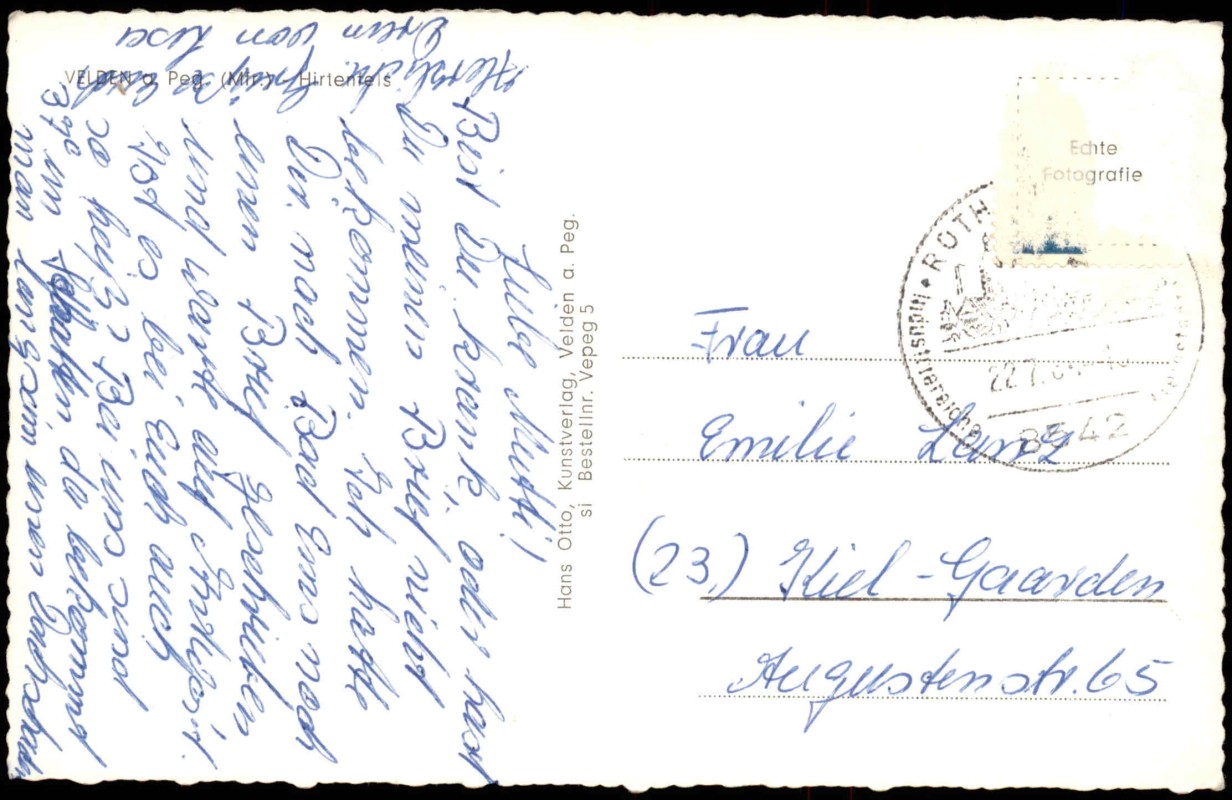 VELDEN a. Peg. (Mfr.) - Hirtenfels
Liebe Mutti!
Bist Du krank, oder hast
Du meinen Brief nicht
bekommen. Ich hatte
Dir nach Bad Ems noch
einen Brief geschrieben
und warte auf Antwort.
Ist es bei Euch auch
so heiß? Bei uns sind
37° im Schatten da bekommt
man langsam einen
Herzlich. Gruß
von
Hans Otto, Kunstverlag, Velden a. Peg.
si Bestellnr. Vepeg 5
Echte
Fotografie
ROTH
Industriereiche
22.7.
8542
Frau
Emilie Lanz
(23) Kiel-Gaarden
Augustenstr. 65